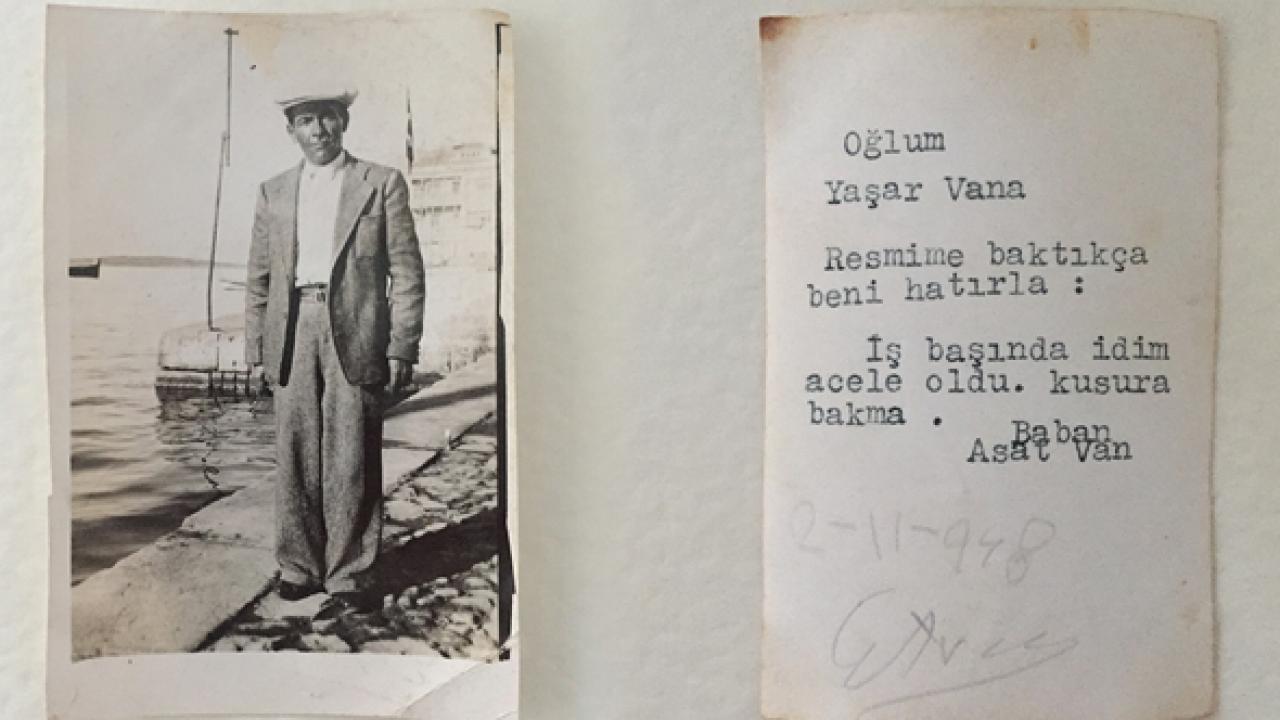 Oğlum
Yaşar Vana
Resmime baktıkça
beni hatırla :
İş başında idim
acele oldu. kusura
bakma .
Baban
Asat Van
2-11-948